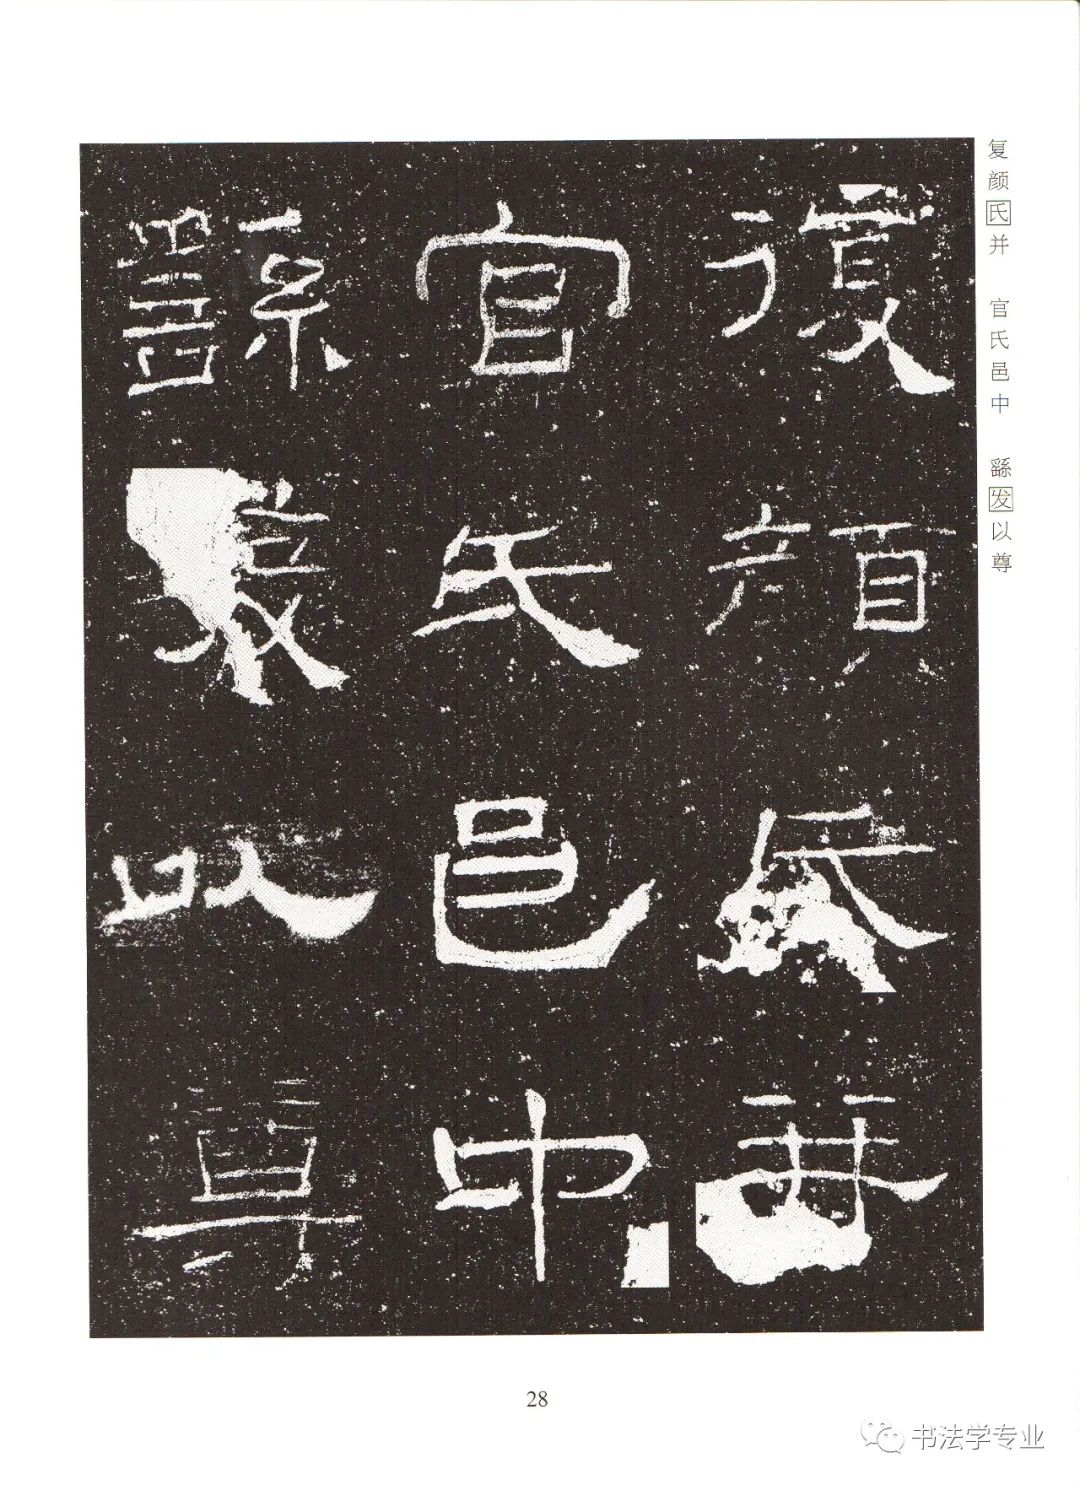 复颜氏并 官氏邑中 䌛发以尊
復顏氏并
官氏邑中
繇發以尊
28
书法学专业